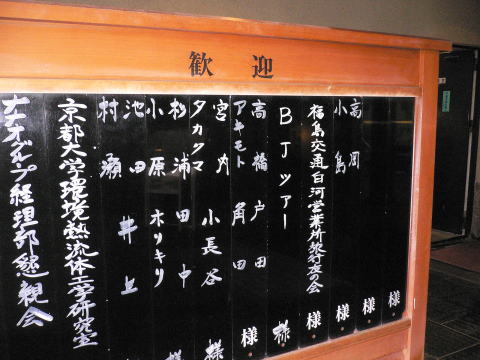 歓迎
様
様
高岡
小島
様
福島交通白河営業所旅行友の会
様
BJツアー
様
高橋 戸田
アキモト 角田
様
宮内
タカクマ 小長谷
様
杉浦 田中
小原 ホリキリ
様
池田
村瀬 井上
京都大学環境熱流体工学研究室
ナナオグループ経理部懇親会